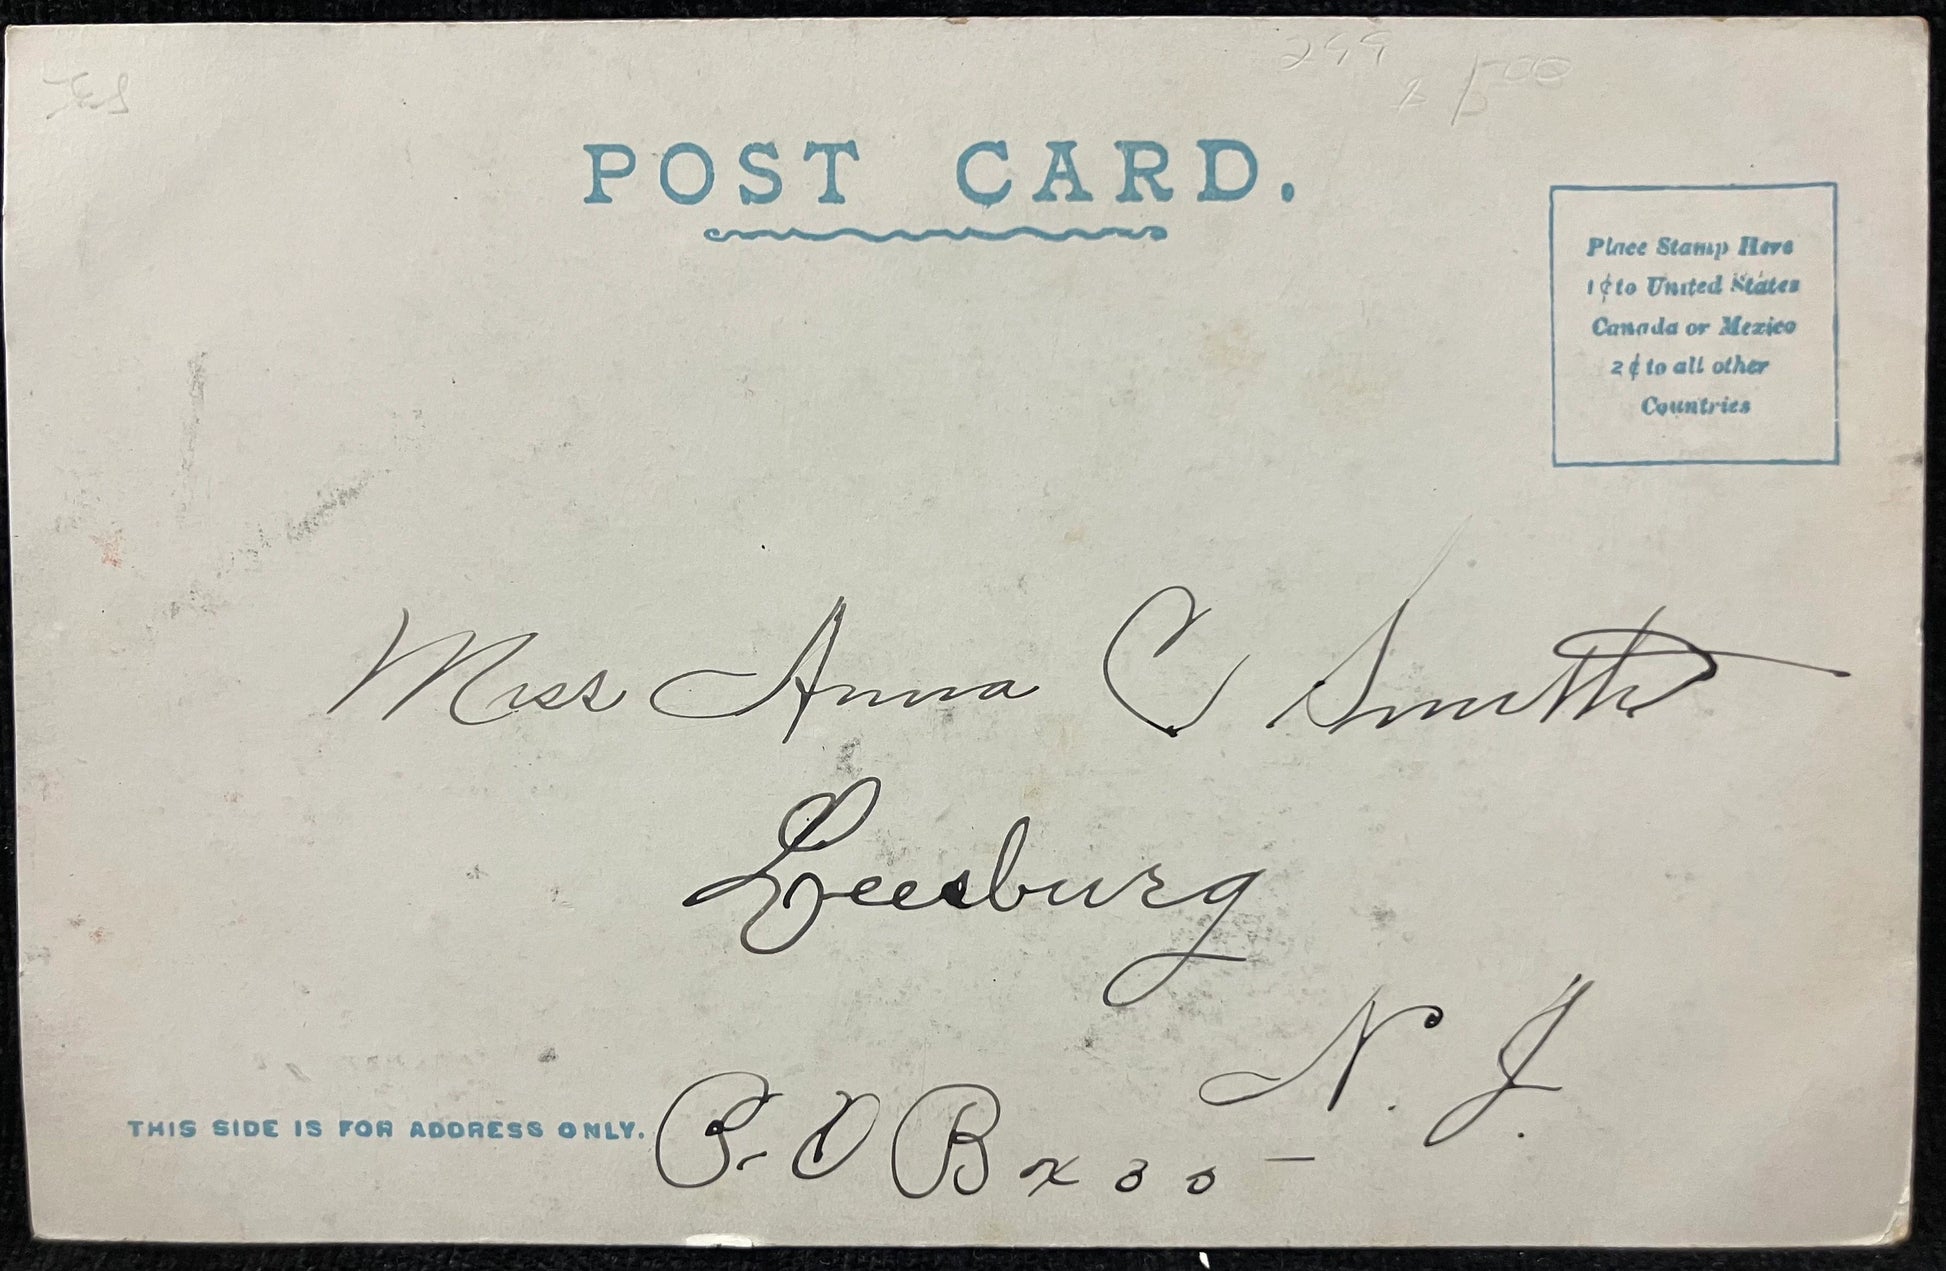 299 1500
POST CARD.
Place Stamp Here
1¢ to United States
Canada or Mexico
2¢ to all other
Countries
Miss Anna C Smith
Leesburg
N. J.
THIS SIDE IS FOR ADDRESS ONLY.
P. O Box 33 –